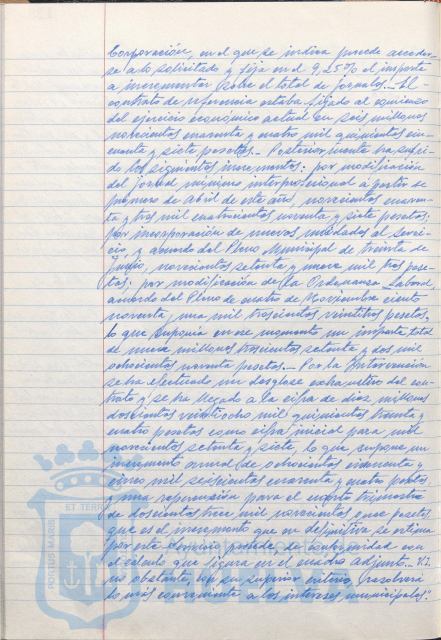 Corporación, en el que se indica puede acceder-
se a lo solicitado y fija en el 9,25% el importe
a incrementar sobre el total de jornales.. El
contrato de referencia estaba fijado al comienzo
del ejercicio económico actual en seis millones
novecientas cuarenta y cuatro mil quinientas cin-
cuenta y siete pesetas.. Posteriormente ha sufri-
do los siguientes incrementos: por modificación
del jornal mínimo interprofesional a partir de
primero de abril de este año, novecientas
y tres mil cuatrocientas noventa y siete pesetas;
por incorporación de nuevas unidades al servi-
cio, y acuerdo del Pleno Municipal de treinta de
Junio, novecientas setenta y nueve mil tres pese-
tas; por modificación de la Ordenanza Laboral,
acuerdo del Pleno de cuatro de Noviembre ciento
noventa y una mil trescientas veintitres pesetas,
lo que suponía en ese momento un importe total
de nueve millones trescientas setenta y dos mil
ochocientas noventa pesetas... Por la Intervención
se ha efectuado un desglose exhaustivo del con-
trato y se ha llegado a la cifra de diez millones
doscientas veintiocho mil quinientas treinta y
cuatro pesetas como cifra inicial para mil
novecientos setenta y siete, lo que supone un
incremento anual de ochocientas cincuenta y
cinco mil seiscientas cuarenta y cuatro pesetas
y una repercusión para el cuarto trimestre
de doscientas trece mil novecientas once pesetas
que es el incremento que en definitiva se estima
por este Servicio procede de conformidad con
el cálculo que figura en el cuadro adjunto.. V.I.
no obstante, con su superior criterio, resolverá
lo más conveniente a los intereses municipales".
ET TERRA
PORTUS MARIS